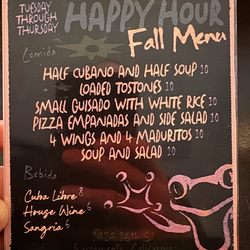 TUESDAY
THROUGH
THURSDAY
HAPPY HOUR
Fall Menu
Comida
HALF CUBANO AND HALF SOUP 10
LOADED TOSTONES 10
SMALL GUISADO WITH WHITE RICE 10
PIZZA EMPANADAS AND SIDE SALAD 10
4 WINGS AND 4 MADURITOS 10
SOUP AND SALAD 10
Bebida
Cuba Libre 8
House Wine 6
Sangria 6